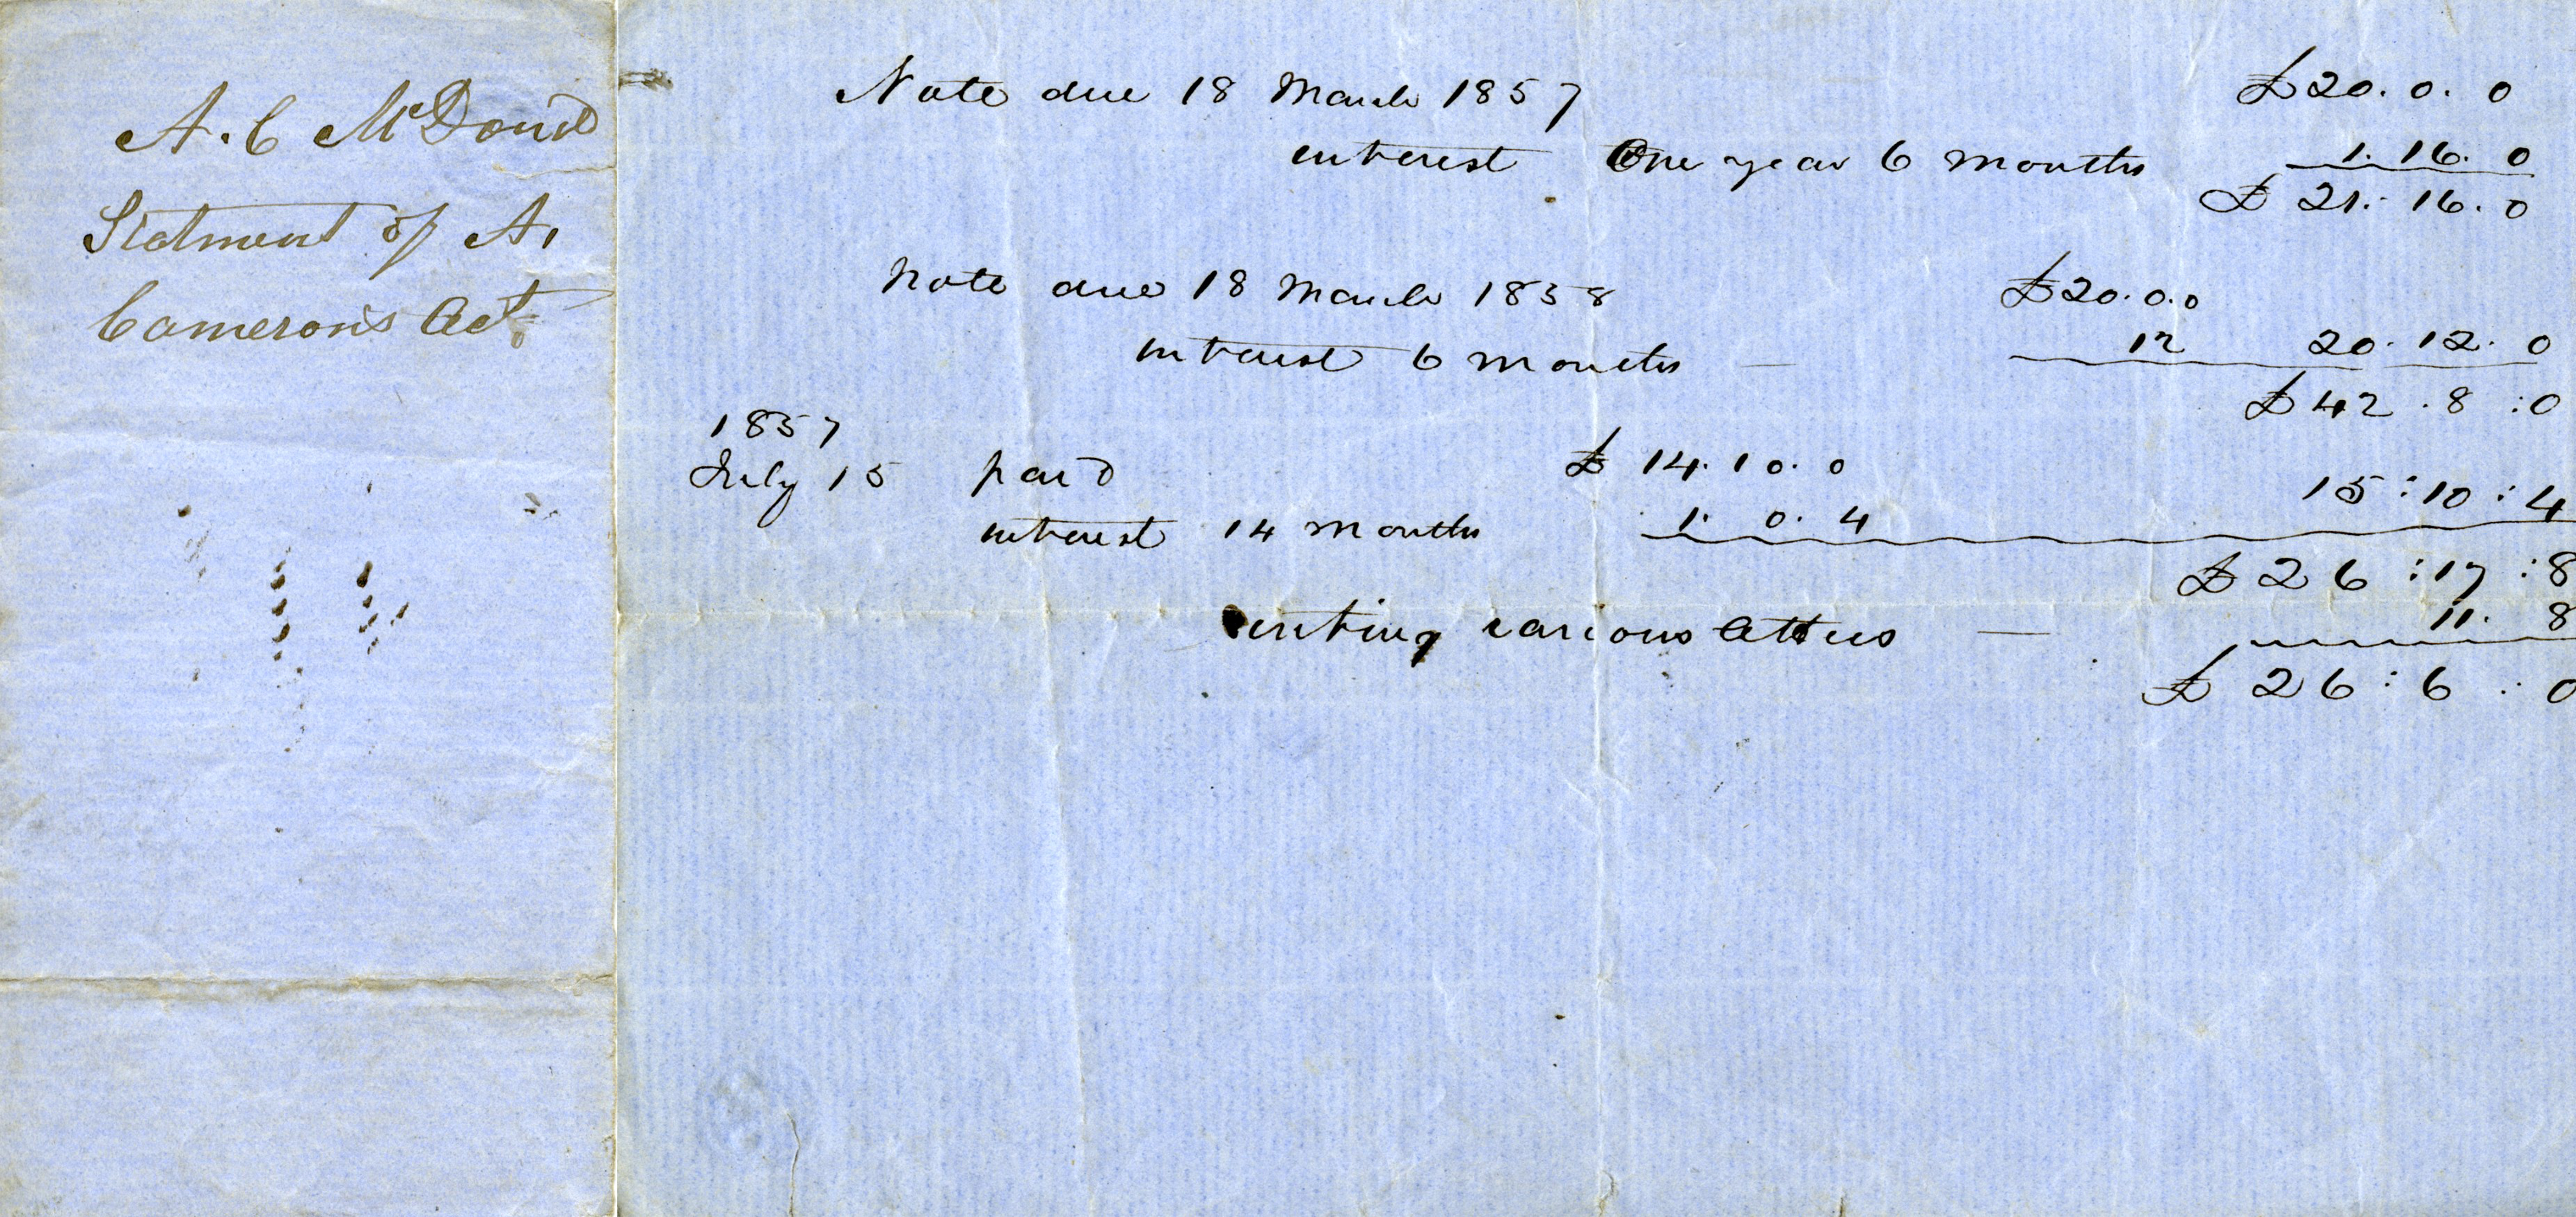 A. C McDond
Statment of A.
Cameron's Act.
Note due 18 March 1857 £20. 0. 0
interest One year 6 months 1. 16. 0
£ 21. 16. 0
Note due 18 March 1858 £20. 0. 0
interest 6 months — 12 20. 12. 0
£ 42 . 8 : 0
1857
July 15 paid £ 14. 10. 0 15 : 10 : 4
interest 14 months 1. 0. 4
£ 26 : 17 : 8
writing various — 11. 8
£ 26 : 6 : 0